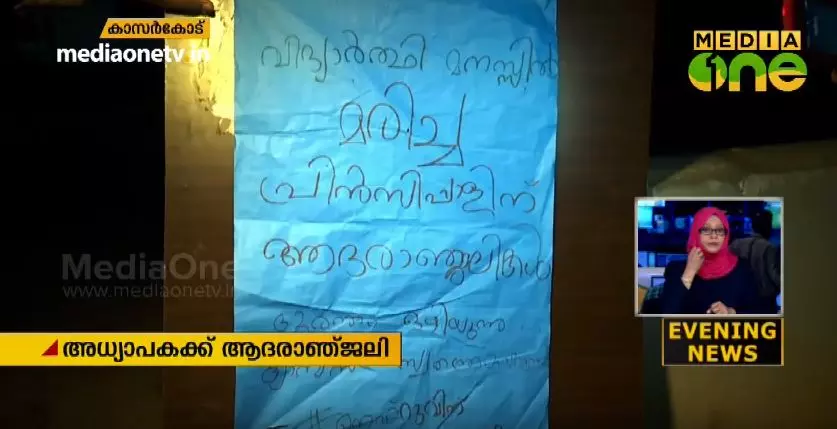 കാസർകോട്
mediaonetv.in
MEDIA
ONE
വിദ്യാർത്ഥി മനസ്സിൽ
മരിച്ച
പ്രിൻസിപ്പാളിന്
ആദരാഞ്ജലികൾ
MediaOne
www.mediaonetv.in
അധ്യാപകക്ക് ആദരാഞ്ജലി
EVENING
NEWS